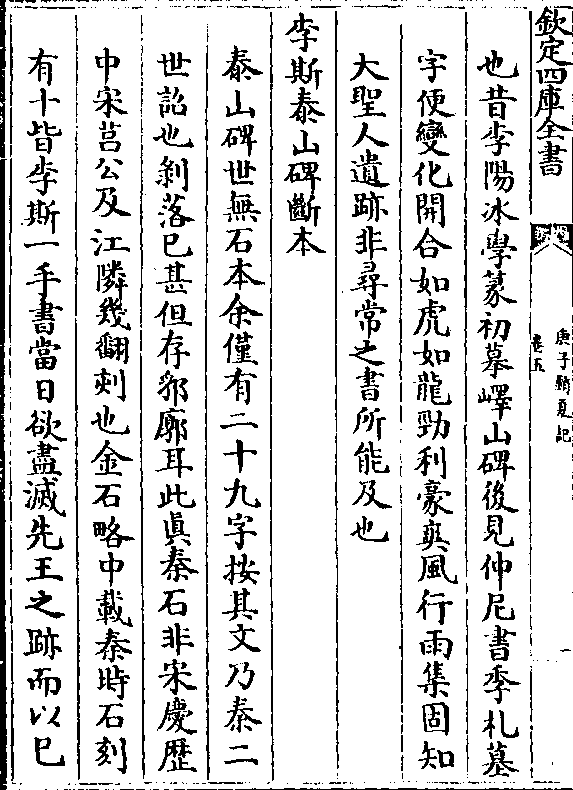 欽定四庫全書
庚子銷夏記
卷五
也昔李陽冰學篆初摹嶧山碑後見仲尼書季札墓
字便變化開合如虎如龍勁利豪爽風行雨集固知
大聖人遺跡非尋常之書所能及也
李斯泰山碑斷本
泰山碑世無石本余僅有二十九字按其文乃秦二
世詔也剝落已甚但存郛廓耳此真秦石非宋慶歴
中宋莒公及江隣幾翻刻也金石略中載秦時石刻
有十皆李斯一手書當日欲盡滅先王之跡而以已